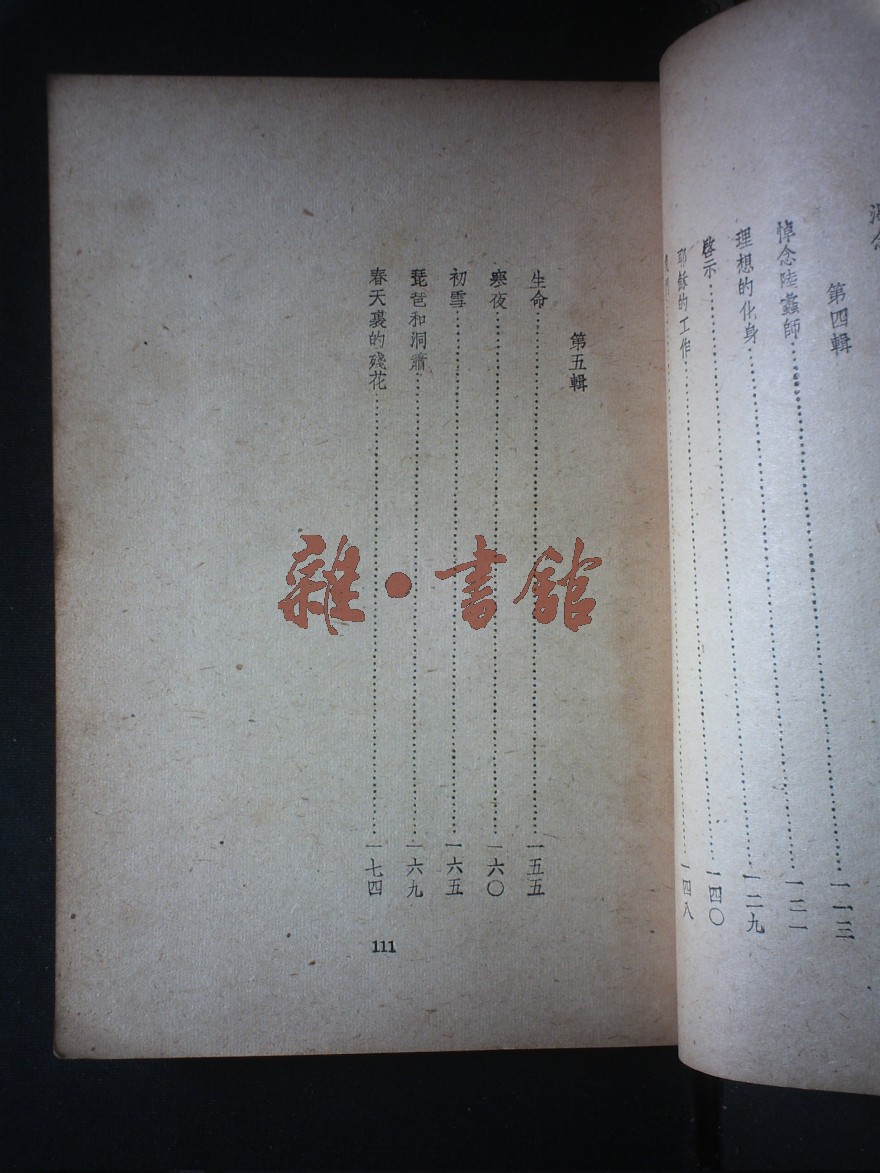 第四輯
悼念陸蠡師……一一三
理想的化身……一二一
啓示……一二九
耶穌的工作……一四〇
一四八
第五輯
生命……一五五
寒夜……一六〇
初雪……一六五
琵琶和洞簫……一六九
春天裏的殘花……一七四
111
雜·書館